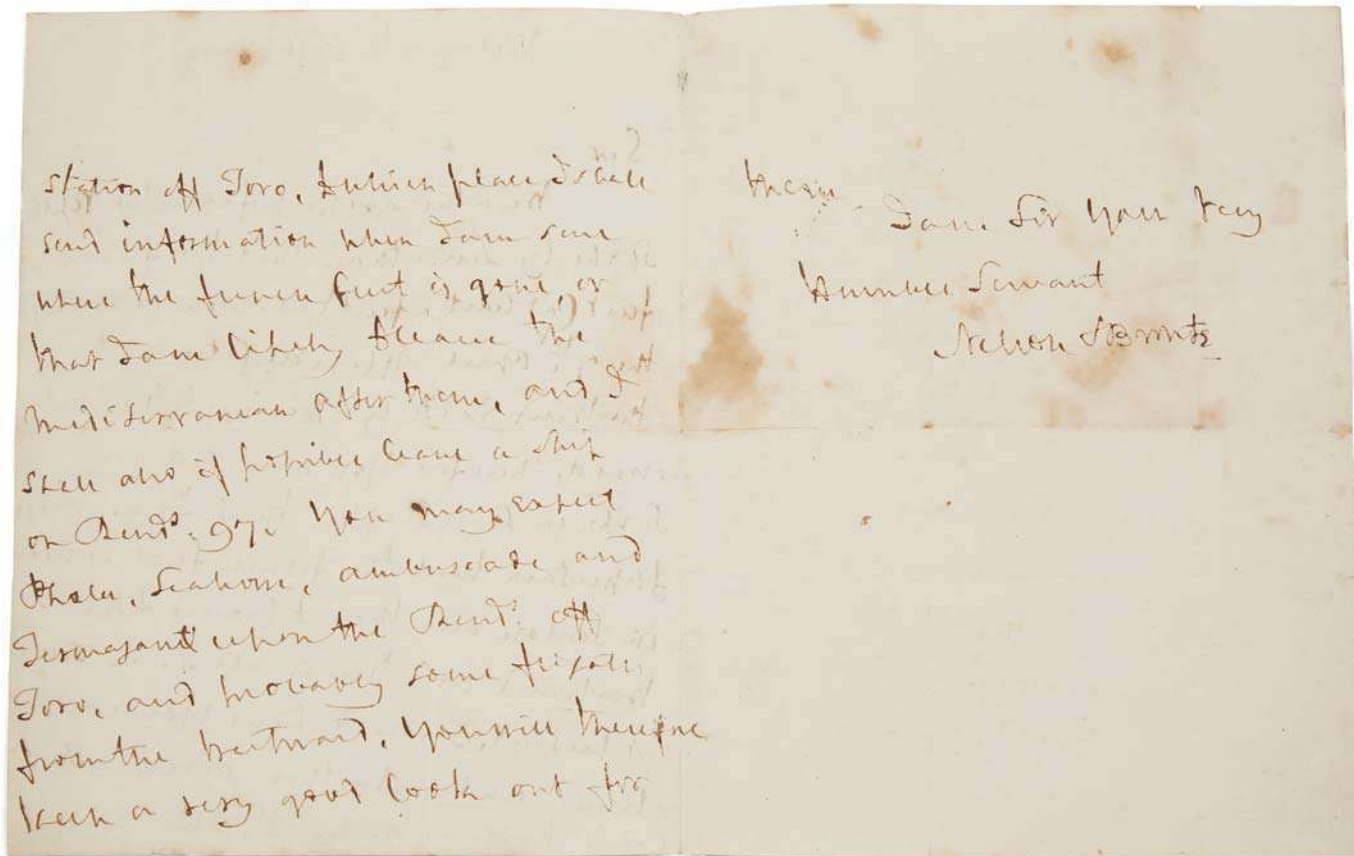 station off Toro, to which place I shall
send information when I am sure
where the french fleet is gone, or
that I am likely to leave the
Mediterranean after them, and I
shall also if possible leave a ship
on Rend.s 97. You may expect
Phoebe, Seahorse, ambuscade and
Termagant upon the Rend.s off
Toro, and probably some frigates
from the westward, You will therefore
keep a very good look out for
them
I am Sir Your Very
Humble Servant
Nelson & Bronte